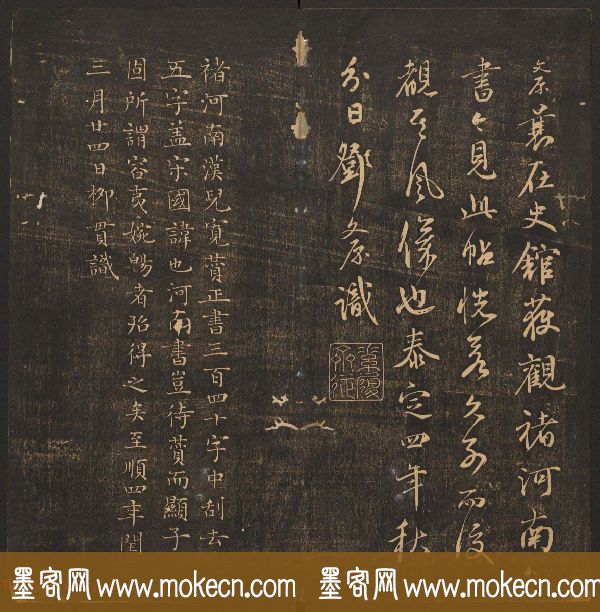 文原曩在史館獲觀褚河南
書今見此帖恍若久別而復
覩其風儀也泰定四年秋
分日鄧文原識
褚河南漢兒寬贊正書三百四十字中刮去
五字蓋宋國諱也河南書豈待贊而顯子
固所謂容夷婉暢者殆得之矣至順四年閏
三月廿四日柳貫識
墨客网 www.mokecn.com 墨客网 www.mokecn.com